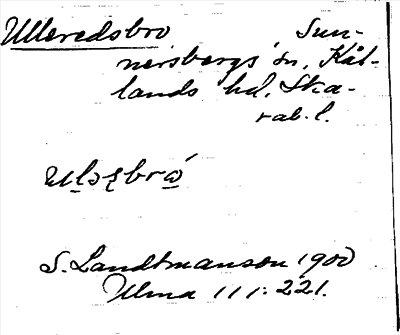 Ulleredsbro Sun-
nersbergs sn, Kål-
lands hd, Ska-
rab. l.
S. Landtmanson 1900
Ulma 111:221.